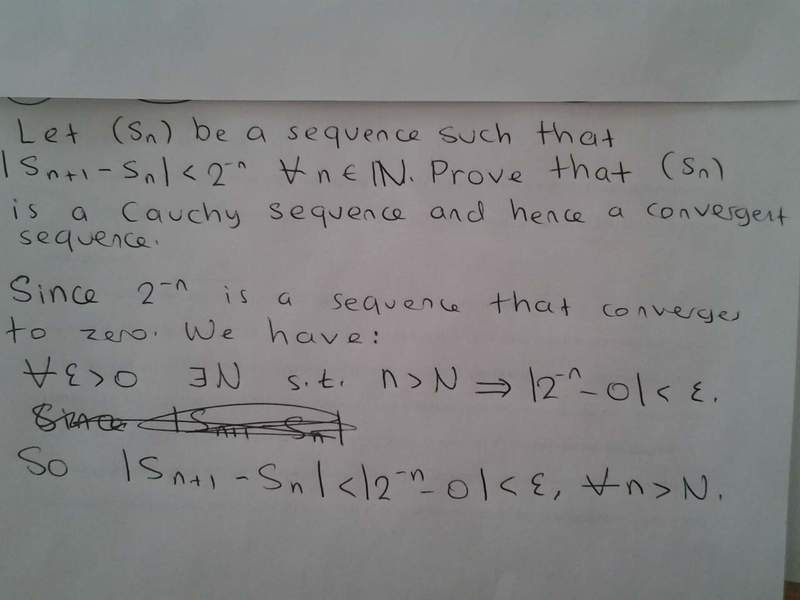 Let (Sn) be a sequence such that
|Sn+1 - Sn| < 2^-n ∀ n ∈ ℕ. Prove that (Sn)
is a Cauchy sequence and hence a convergent
sequence.
Since 2^-n is a sequence that converges
to zero. We have:
∀ε>0 ∃N s.t. n>N ⇒ |2^-n - 0| < ε.
Since |Sn+1 Sn|
So |Sn+1 - Sn| < |2^-n - 0| < ε, ∀n>N.